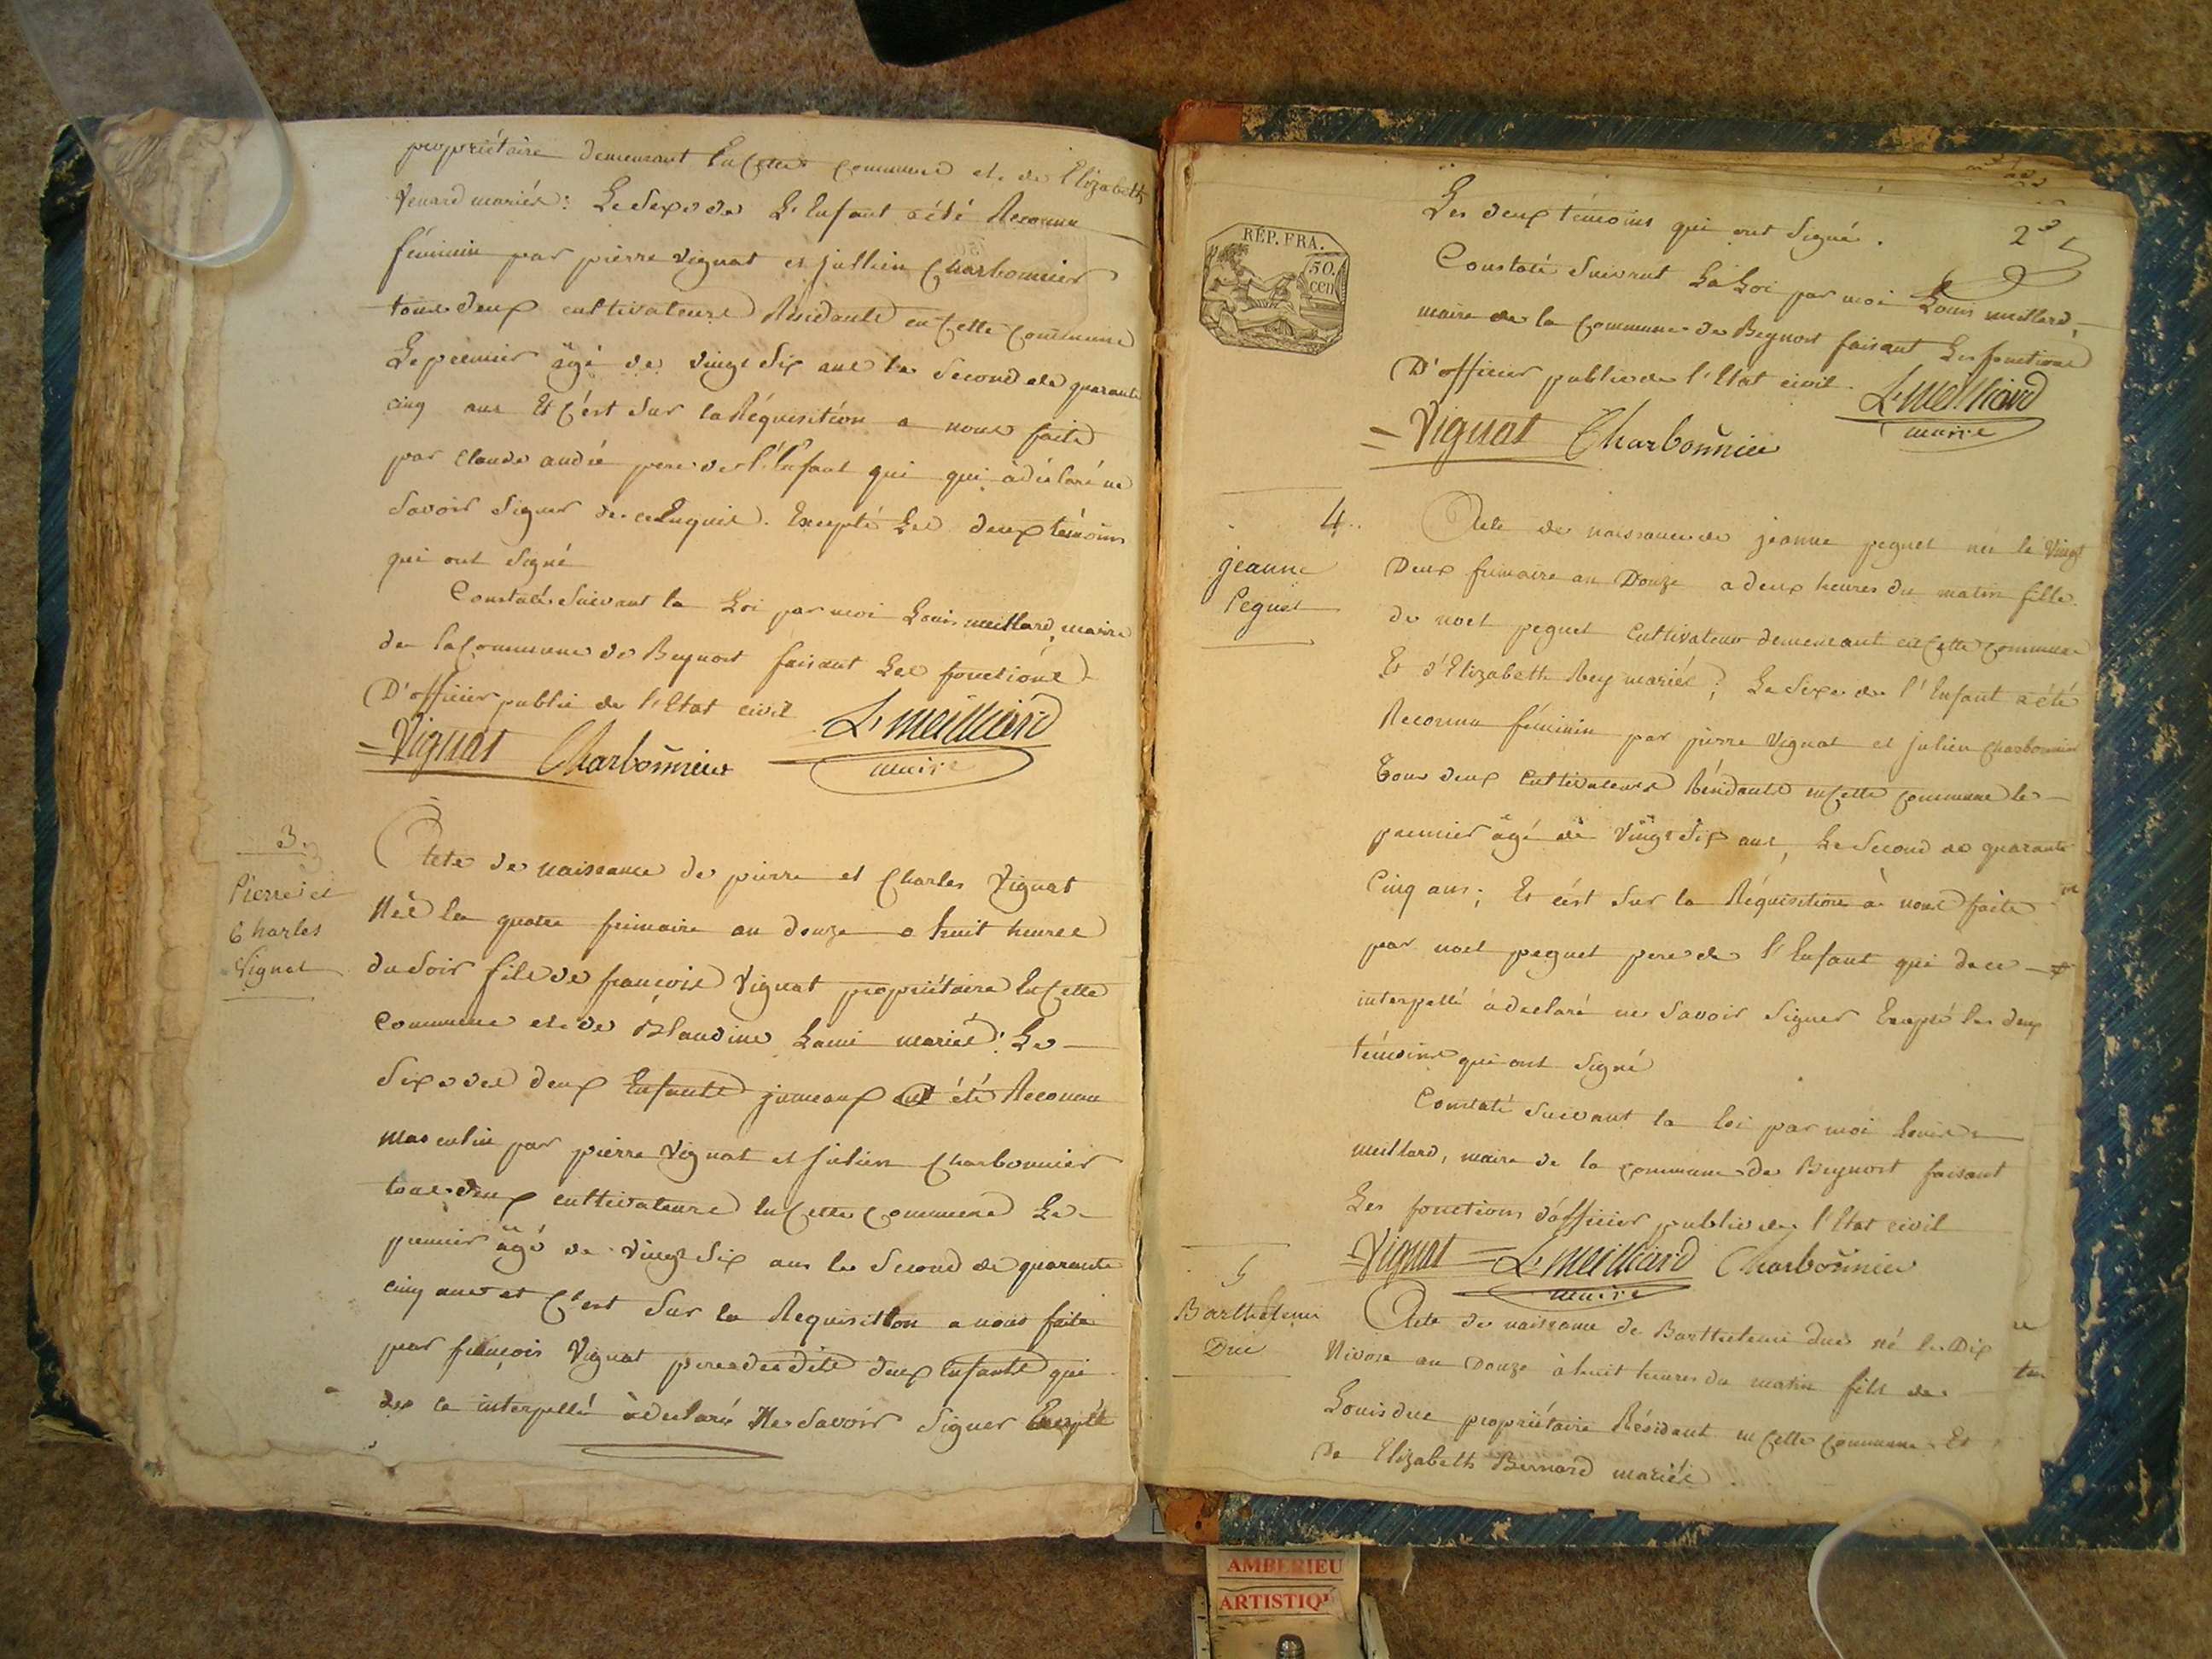 propriétaire demeurant En Cette Commune et de Elizabeth
Venard mariés : Le Sexe de L'Enfant a été Reconnu
féminin par pierre Vignat et jullien Charbonnier
tous deux cultivateurs Résidants en Cette Commune
Le premier âgé de vingt Six ans le Second de quarante
cinq ans Et C'est Sur la Réquisition a nous faite
par Claude andré pere de l'Enfant qui qui à déclaré ne
Savoir Signer de ce Enquis. Excepté Les deux témoins
qui ont Signé
Constaté Suivant la Loi par moi Louis meillard, maire
de la Commune de Beynost faisant Les fonctions
D'officier public de l'Etat civil
Vignat Charbonnier L. meilliard
maire
3.
Pierre et
Charles
Vignat
Acte de naissance de pierre et Charles Vignat
Nés le quatre frimaire an douze a huit heures
du Soir fils de françois Vignat propriétaire En Cette
Commune et de Blandine Lami mariés : Le
Sexe des deux Enfants jumeaux été Reconnu
masculin par pierre Vignat et julien Charbonnier
tous deux cultivateurs En Cette Commune Le
premier âgé de vingt Six ans le Second de quarante
cinq ans et C'est Sur la Requisition a nous faite
par françois Vignat pere des dits deux Enfants qui
de ce interpellé à declaré Ne Savoir Signer Excepté
2
RÉP. FRA.
50.
cen
Les deux témoins qui ont Signé.
Constaté Suivant La Loi par moi Louis meillard,
maire de la Commune de Beynost faisant Les fonctions
D'officier public de l'Etat civil.
L. meilliard
maire
Vignat Charbonnier
4.
jeanne
Peguet
Acte de naissance de jeanne peguet née le Vingt
Deux frimaire an Douze a deux heures du matin fille
de noel peguet Cultivateur demeurant en Cette Commune
Et d'Elizabeth Rey mariés ; Le Sexe de l'Enfant a été
Reconnu féminin par pierre Vignat et julien Charbonnier
Tous deux Cultivateurs Résidants en Cette Commune le
premier âgé de Vingt Six ans, Le Second de quarante
Cinq ans ; Et c'est Sur la Réquisition à nous faite
par noel peguet pere de l'Enfant qui de ce
interpellé à declaré ne Savoir Signer Excepté les deux
témoins qui ont Signé
Constaté Suivant la loi par moi Louis
meillard, maire de la commune de Beynost faisant
Les fonctions d'officier public de l'Etat civil
Vignat L. meilliard Charbonnier
maire
5
Barthelemi
Duc
Acte de naissance de Barthelemi duc né le Dix
Nivose an Douze à huit heures du matin fils de
Louis duc propriétaire Résidant en Cette Commune Et
De Elizabeth Bernard mariés
AMBERIEU
ARTISTIQ